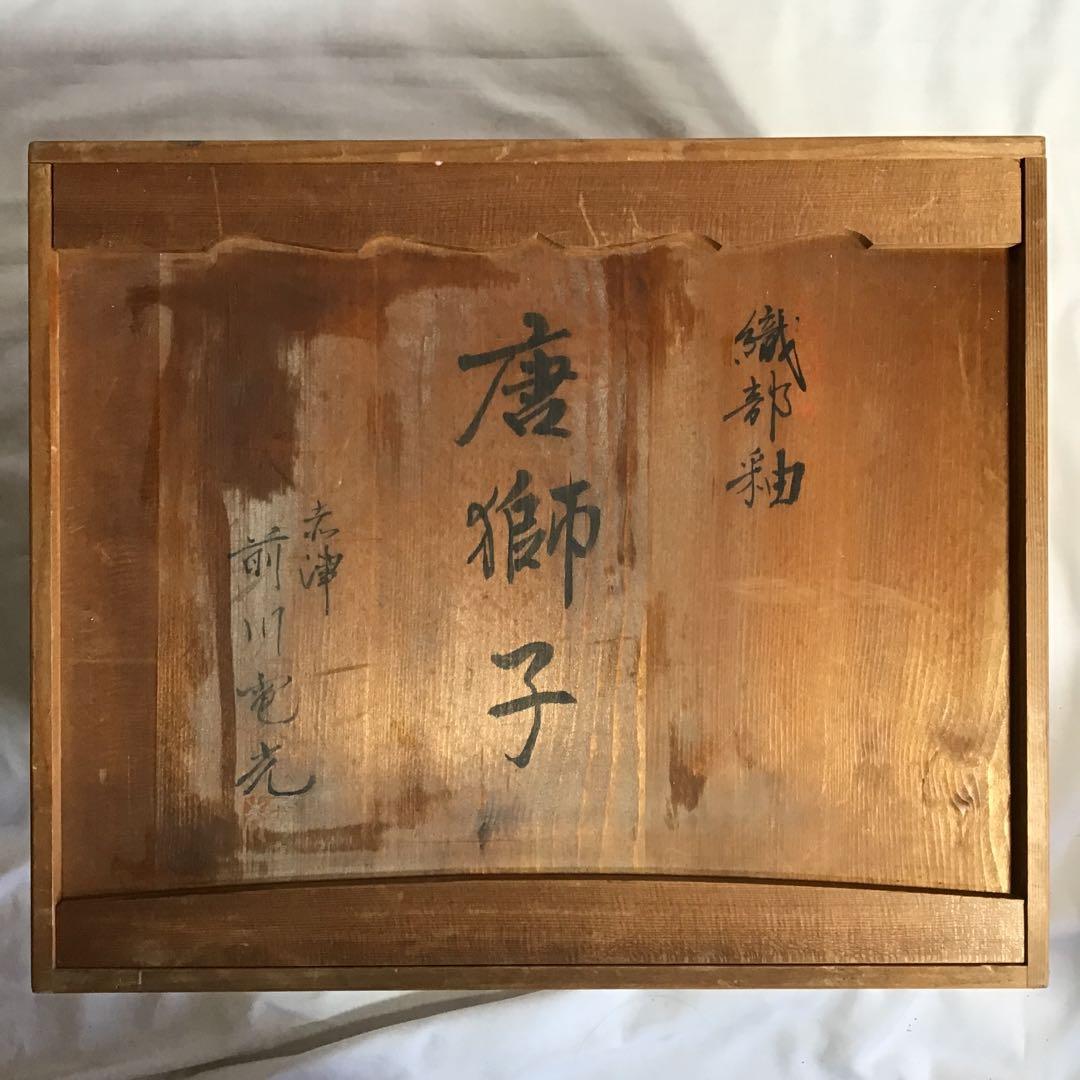 織部釉
唐獅子
赤津
前川電光